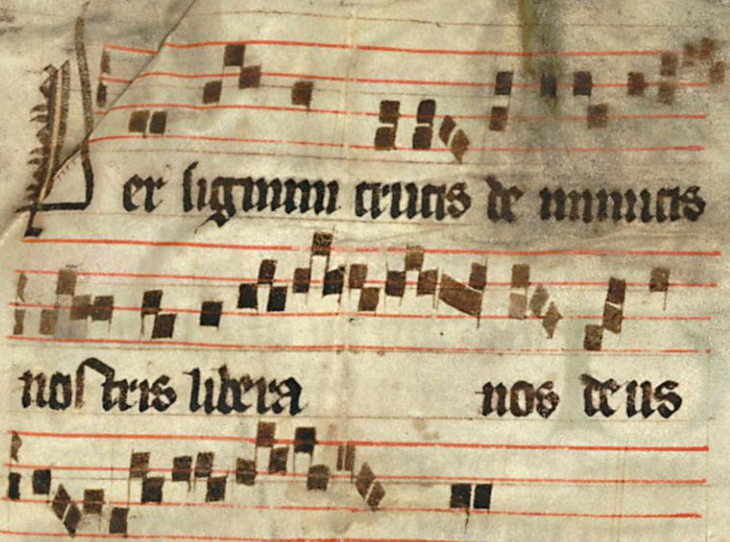 Per signum crucis de inimicis
nostris libera nos deus